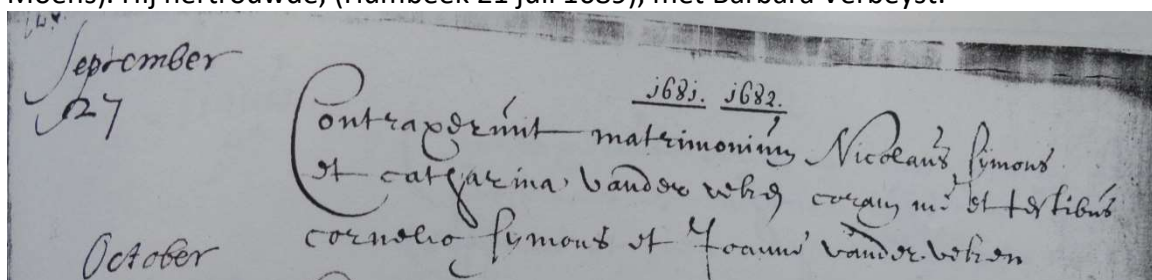 Moens). Hij hertrouwde, (Humbeek 21 juli 1689), met Barbara Verbeyst.
September
27
1681. 1682.
Contraxerunt matrimonium Nicolaus Symons
et catharina vander veken coram me et testibus
cornelio Symons et Joanne vander veken
October